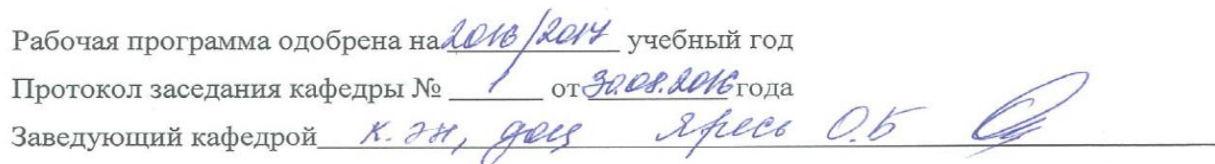 Рабочая программа одобрена на 2016/2017 учебный год
Протокол заседания кафедры № 1 от 30.08.2016 года
Заведующий кафедрой к. эн, доц Яресь О.Б